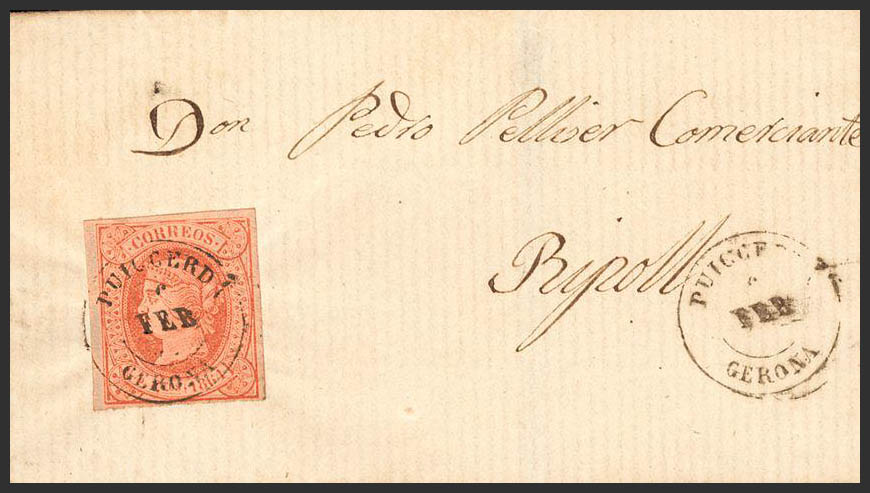 Don Pedro Pelliser Comerciante
Ripoll
CORREOS
PUIGCERD
FEB
GERONA
PUIGCER
FEB
GERONA